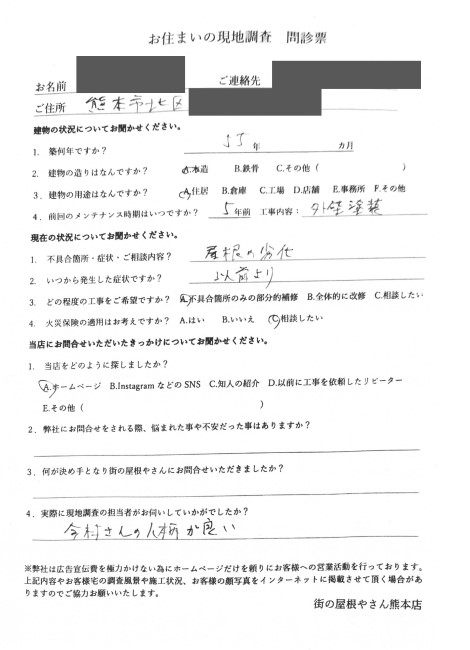 お住まいの現地調査　問診票
お名前　ご連絡先
ご住所　熊本市北区
建物の状況についてお聞かせください。
1. 築何年ですか？　55年　カ月
2. 建物の造りはなんですか？　A.木造　B.鉄骨　C.その他（　）
3. 建物の用途はなんですか？　A.住居　B.倉庫　C.工場　D.店舗　E.事務所　F.その他
4. 前回のメンテナンス時期はいつですか？　5年前　工事内容：外壁塗装
現在の状況についてお聞かせください。
1. 不具合箇所・症状・ご相談内容？　屋根の劣化
2. いつから発生した症状ですか？　以前より
3. どの程度の工事をご希望ですか？　A.不具合箇所のみの部分的補修　B.全体的に改修　C.相談したい
4. 火災保険の適用はお考えですか？　A.はい　B.いいえ　C.相談したい
当店にお問合せいただいたきっかけについてお聞かせください。
1. 当店をどのように探しましたか？
A.ホームページ　B.InstagramなどのSNS　C.知人の紹介　D.以前に工事を依頼したリピーター
E.その他（　）
2. 弊社にお問合せをされる際、悩まれた事や不安だった事はありますか？
3. 何が決め手となり街の屋根やさんにお問合せいただきましたか？
4. 実際に現地調査の担当者がお伺いしていかがでしたか？
今村さんの人柄が良い
※弊社は広告宣伝費を極力かけない為にホームページだけを頼りにお客様への営業活動を行っております。
上記内容やお客様宅の調査風景や施工状況、お客様の顔写真をインターネットに掲載させて頂く場合があ
りますのでご協力お願いいたします。
街の屋根やさん熊本店